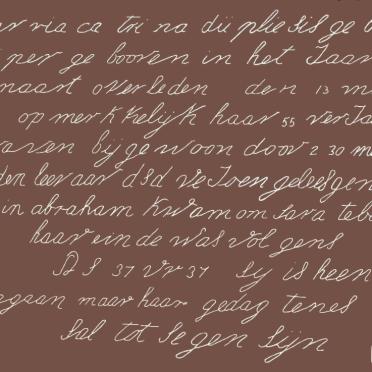 via ca tri na dii plie sis ge
per ge booren in het Jaar
maart overleden den 13 m
op mer kkelijk haar 55 verJa
bij ge woon door 2 30 me
den leer aar dsd ve Toen geleesgen
in abraham kwam om sara tebe
haar einde was vol gens
Ps 37 vr 37 sy is heen
gegaan maar haar gedag tenes
sal tot se gen sijn